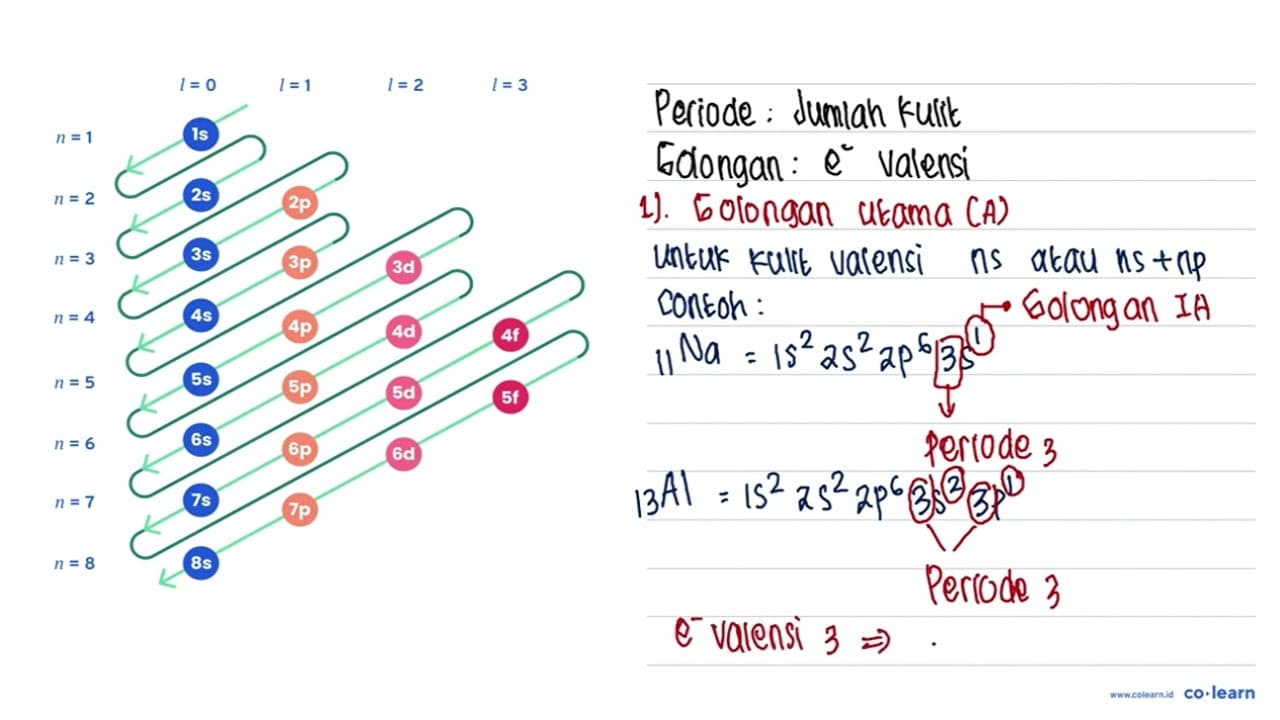 l = 0 l = 1 l = 2 l = 3
n = 1 1s
n = 2 2s 2p
n = 3 3s 3p 3d
n = 4 4s 4p 4d 4f
n = 5 5s 5p 5d 5f
n = 6 6s 6p 6d
n = 7 7s 7p
n = 8 8s
Periode : Jumlah kulit
Golongan : e⁻ valensi
1). Golongan utama (A)
untuk kulit valensi ns atau ns + np
Contoh :
Golongan IA
₁₁Na = 1s² 2s² 2p⁶ 3s¹
Periode 3
₁₃Al = 1s² 2s² 2p⁶ 3s² 3p¹
Periode 3
e⁻ valensi 3 ⇒ .
www.colearn.id co·learn